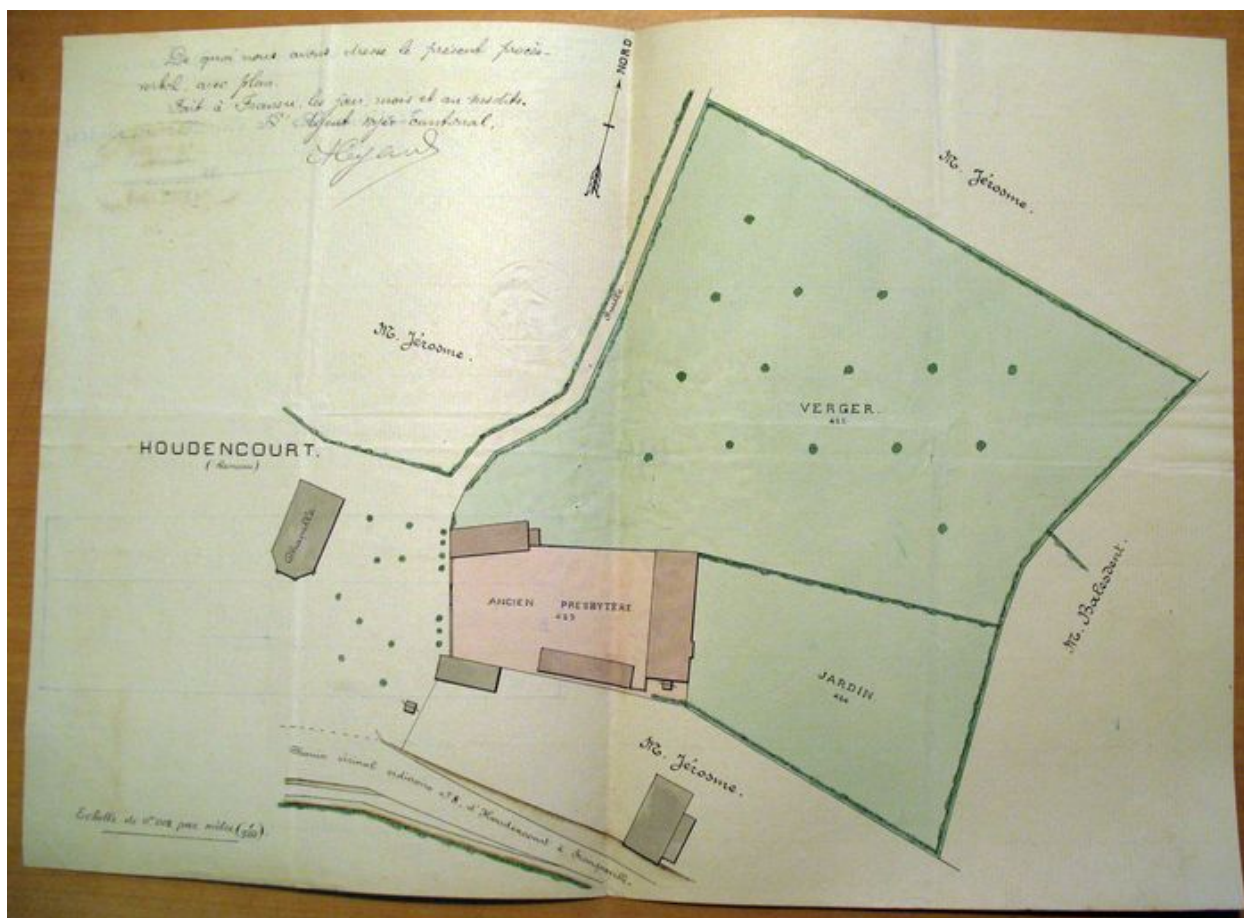 De quoi nous avons dressé le présent procès-
verbal, avec plan.
Fait à Fransu, les jour, mois et an susdits.
L'Agent voyer cantonal,
NORD
M. Jérosme.
M. Jérosme.
Ruelle
VERGER.
HOUDENCOURT.
(Hameau)
Chapelle
ANCIEN PRESBYTÈRE
M. Balesdent.
JARDIN
M. Jérosme.
Chemin vicinal ordinaire N° 8, d'Houdencourt à
Echelle de par mètre